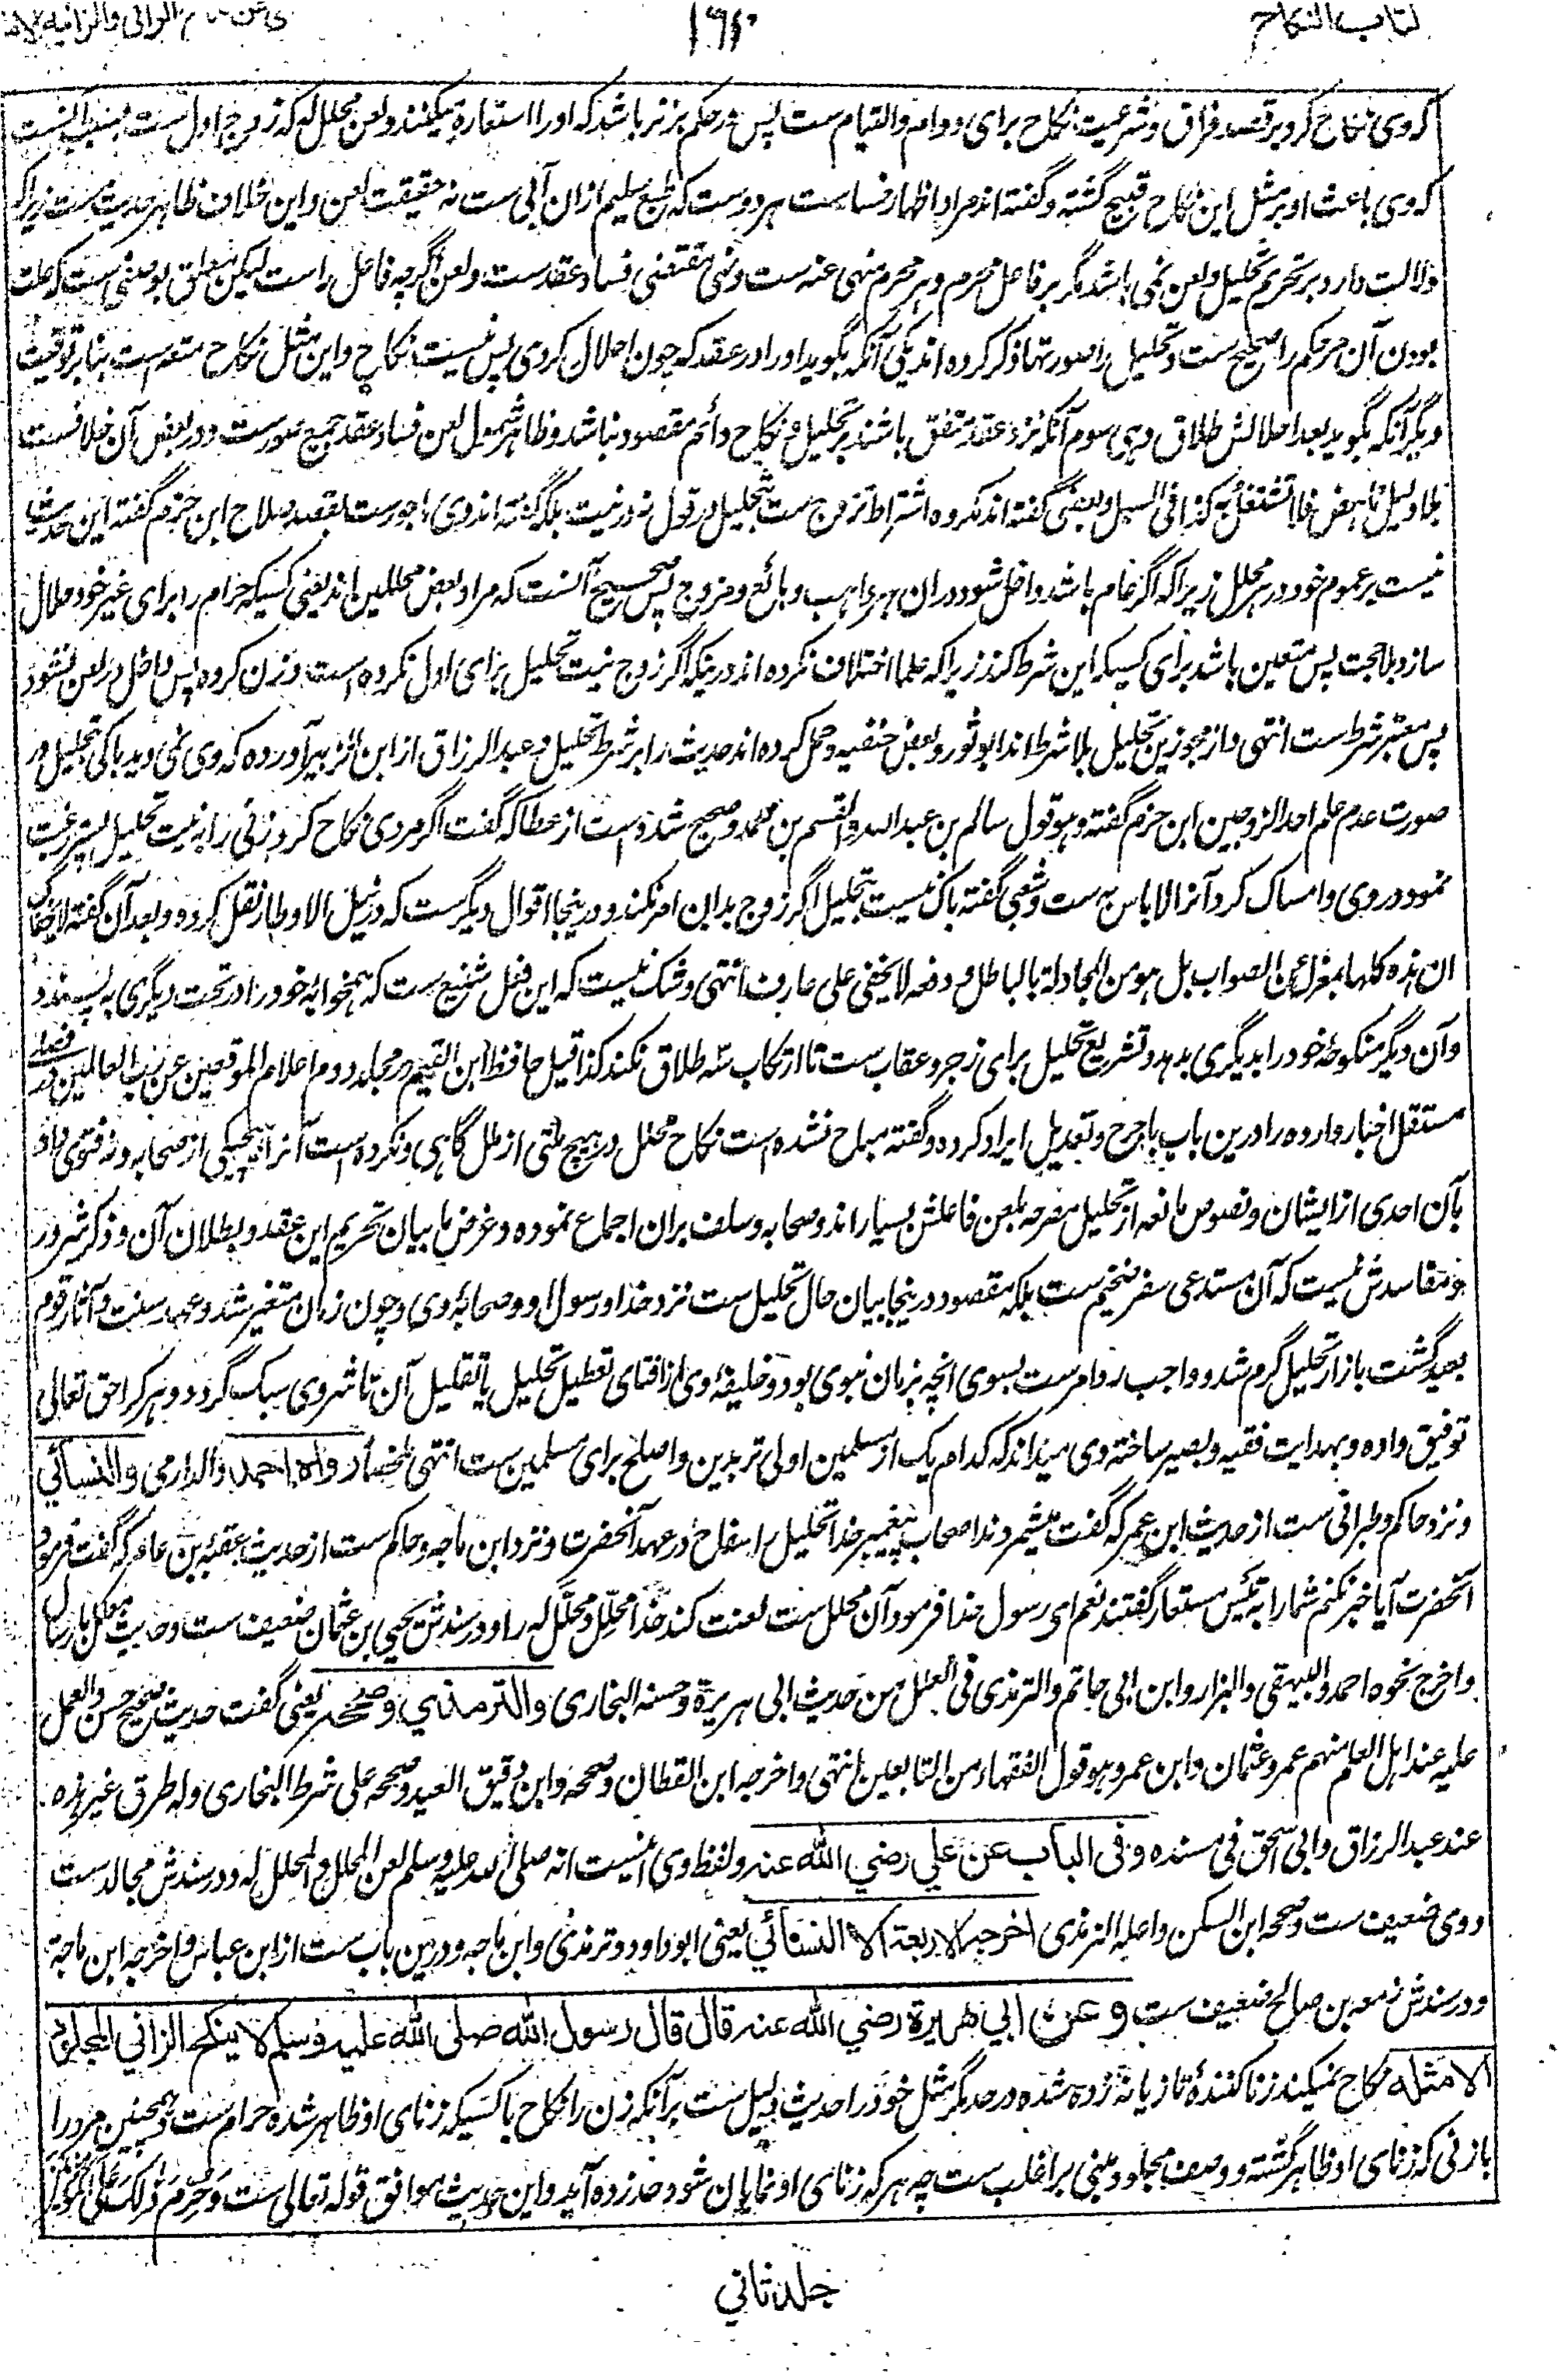 کتاب النکاح
۱۹۲
کہ وی نکاح کرد بر قصد فراق و شرعیت نکاح برای دوام و التیام ست پس در حکم بز نر باشد کہ او را استعارہ میکنند و لعن محلل لہ کہ زوج اول ست بسبب آنست
کہ وی باعث او بر مثل این نکاح قبیح گشتہ و گفتہ اند مراد اظہار خساست ہر دوست کہ طبع سلیم ازان آبی ست نہ حقیقت لعن و این خلاف ظاہر حدیث ست زیرا کہ
دلالت دارد بر تحریم تحلیل و لعن نمی باشد مگر بر فاعل محرم و ہر محرم منہی عنہ ست و نہی مقتضی فساد عقدست و لعن اگرچہ فاعل راست لیکن معلق بوصفی ست کہ علت
بودن آن مر حکم را صحیح ست و تحلیل را صورتہا ذکر کردہ اند یکی آنکہ بگوید او را در عقد کہ چون احلال کردی پس نیست نکاح و این مثل نکاح متعہ است بنا بر توقیت
دیگر آنکہ بگوید بعد احلالش طلاق دہی سوم آنکہ نزد عقد متفق باشند بر تحلیل و نکاح دائم مقصود نباشد و ظاہر شمول لعن فساد عقد جمیع صورست و در بعض آن خلافست
بلا دلیل ناہض فلا تشتغل بہ کذا فی السبل و بعضی گفتہ اند مکروہ اشتراط تزوج ست بتحلیل در قول نہ در نیت بلکہ گفتہ اند وی ماجورست بقصد صلاح ابن حزم گفتہ این حدیث
نیست بر عموم خود در ہر محلل زیرا کہ اگر عام باشد داخل شود در ان ہر واہب و بائع و مزوج پس صحیح آنست کہ مراد بعض محللین اند یعنی کسیکہ حرام را برای غیر خود حلال
سازد بلا حجت پس متعین باشد برای کسیکہ این شرط کند زیرا کہ علما اختلاف نکردہ اند درینکہ اگر زوج نیت تحلیل برای اول نکردہ است و زن کردہ پس داخل در لعن نشود
پس معتبر شرط ست انتہی و از مجوزین تحلیل بلا شرط اند ابو ثور و بعض حنفیہ و حمل کردہ اند حدیث را بر شرط تحلیل و عبد الرزاق از ابن الزبیر آوردہ کہ وی نمی دید باکی بتحلیل در
صورت عدم علم احد الزوجین ابن حزم گفتہ و ہو قول سالم بن عبد اللہ و القسم بن محمد و صحیح شدہ است از عطا کہ گفت اگر مردی نکاح کرد زنی را بہ نیت تحلیل پستر رغبت
نمود در وی و امساک کرد آنرا لا باس بہ ست و شعبی گفتہ باک نیست بتحلیل اگر زوج بدان امر نکند و درینجا اقوال دیگرست کہ در نیل الاوطار نقل کردہ و بعد آن گفتہ لا یخفاک
ان ہذہ کلہا بمعزل عن الصواب بل ہو من المجادلة بالباطل و دفعہ لا یخفی علی عارف انتہی و شک نیست کہ این فعل شنیع ست کہ ہمخوابہ خود را در تحت دیگری بہ پسندد
و آن دیگر منکوحۂ خود را بدیگری بدہد و تشریع تحلیل برای زجر و عقاب ست تا ارتکاب سہ طلاق نکند کذا قیل حافظ ابن القیم در مجلد دوم اعلام الموقعین عن رب العالمین در فصلے
مستقل اخبار واردہ را درین باب با جرح و تعدیل ایراد کردہ و گفتہ مباح نشدہ است نکاح محلل در ہیچ ملتی از ملل گاہی و نکردہ است آنرا ہیچیکی از صحابہ و نہ فتوی داد
بآن احدی از ایشان و نصوص مانعہ از تحلیل مصرحہ بلعن فاعلش بسیار اند و صحابہ و سلف بران اجماع نمودہ و غرض ما بیان تحریم این عقد و بطلان آن و ذکر شرور
و مفاسدش نیست کہ آن مستدعی سفر ضخیم ست بلکہ مقصود درینجا بیان حال تحلیل ست نزد خدا و رسول او و صحابۂ وی و چون زمان متغیر شد و عہد سنت و آثار قوم
بعید گشت بازار تحلیل گرم شد و واجب رد امرست بسوی انچہ بزمان نبوی بود و خلیفۂ وی از افتای تعطیل تحلیل یا تقلیل آن تا شر وی سبک گردد و ہر کرا حق تعالی
توفیق دادہ و بہدایت فقیہ و بصیر ساختہ وی میداند کہ کدام یک از مسلمین اولی تر بدین و اصلح برای مسلمین ست انتہی ملخصا رواہ احمد و الدارمی و النسائی
و نزد حاکم و طبرانی ست از حدیث ابن عمر کہ گفت میشمردند اصحاب پیغمبر خدا تحلیل را سفاح در عہد آنحضرت و نزد ابن ماجہ و حاکم ست از حدیث عقبہ بن عامر کہ گفت فرمود
آنحضرت آیا خبر نکنم شما را بہ تیس مستعار گفتند نعم ای رسول خدا فرمود آن محلل ست لعنت کند خدا محلِّل و محلَّل لہ را و در سندش یحیی بن عثمان ضعیف ست و حدیث معلل بارسال
و اخرج نحوہ احمد و البیہقی و البزار و ابن ابی حاتم و الترمذی فی العلل من حدیث ابی ہریرة و حسنہ البخاری والترمذي وصححہ یعنی گفت حدیث صحیح حسن و العمل
علیہ عند اہل العلم منہم عمر و عثمان و ابن عمر و ہو قول الفقہاء من التابعین انتہی و اخرجہ ابن القطان و صححہ و ابن دقیق العید و صححہ علی شرط البخاری و لہ طرق غیر ہذہ
عند عبد الرزاق و ابی اسحق فی مسندہ وفی الباب عن علي رضي الله عنہ و لفظ وی اینست انہ صلی اللہ علیہ وسلم لعن المحلل و المحلل لہ و در سندش مجالدست
و وی ضعیف ست و صححہ ابن السکن و اعلہ الترمذی اخرجہ الاربعة الا النسائي یعنی ابو داود و ترمذی و ابن ماجہ و درین باب ست از ابن عباس و اخرجہ ابن ماجة
و در سندش زمعہ بن صالح ضعیف ست وعن ابي هریرة رضي الله عنہ قال قال رسول الله صلی الله علیہ وسلم لا ینکح الزاني المجلود
الا مثلہ نکاح نمیکند زنا کنندۂ تازیانہ زدہ شدہ در حد مگر مثل خود را حدیث دلیل ست بر آنکہ زن را نکاح با کسیکہ زنای او ظاہر شدہ حرام ست و ہمچنین مرد را
با زنی کہ زنای او ظاہر گشتہ و وصف مجلود مبنی بر اغلب ست چہ ہر کہ زنای او نمایان شود حد زدہ آید و این حدیث موافق قولہ تعالی ست وَحُرِّمَ ذٰلِکَ عَلَی الْمُؤْمِنِینَ
جلد ثاني